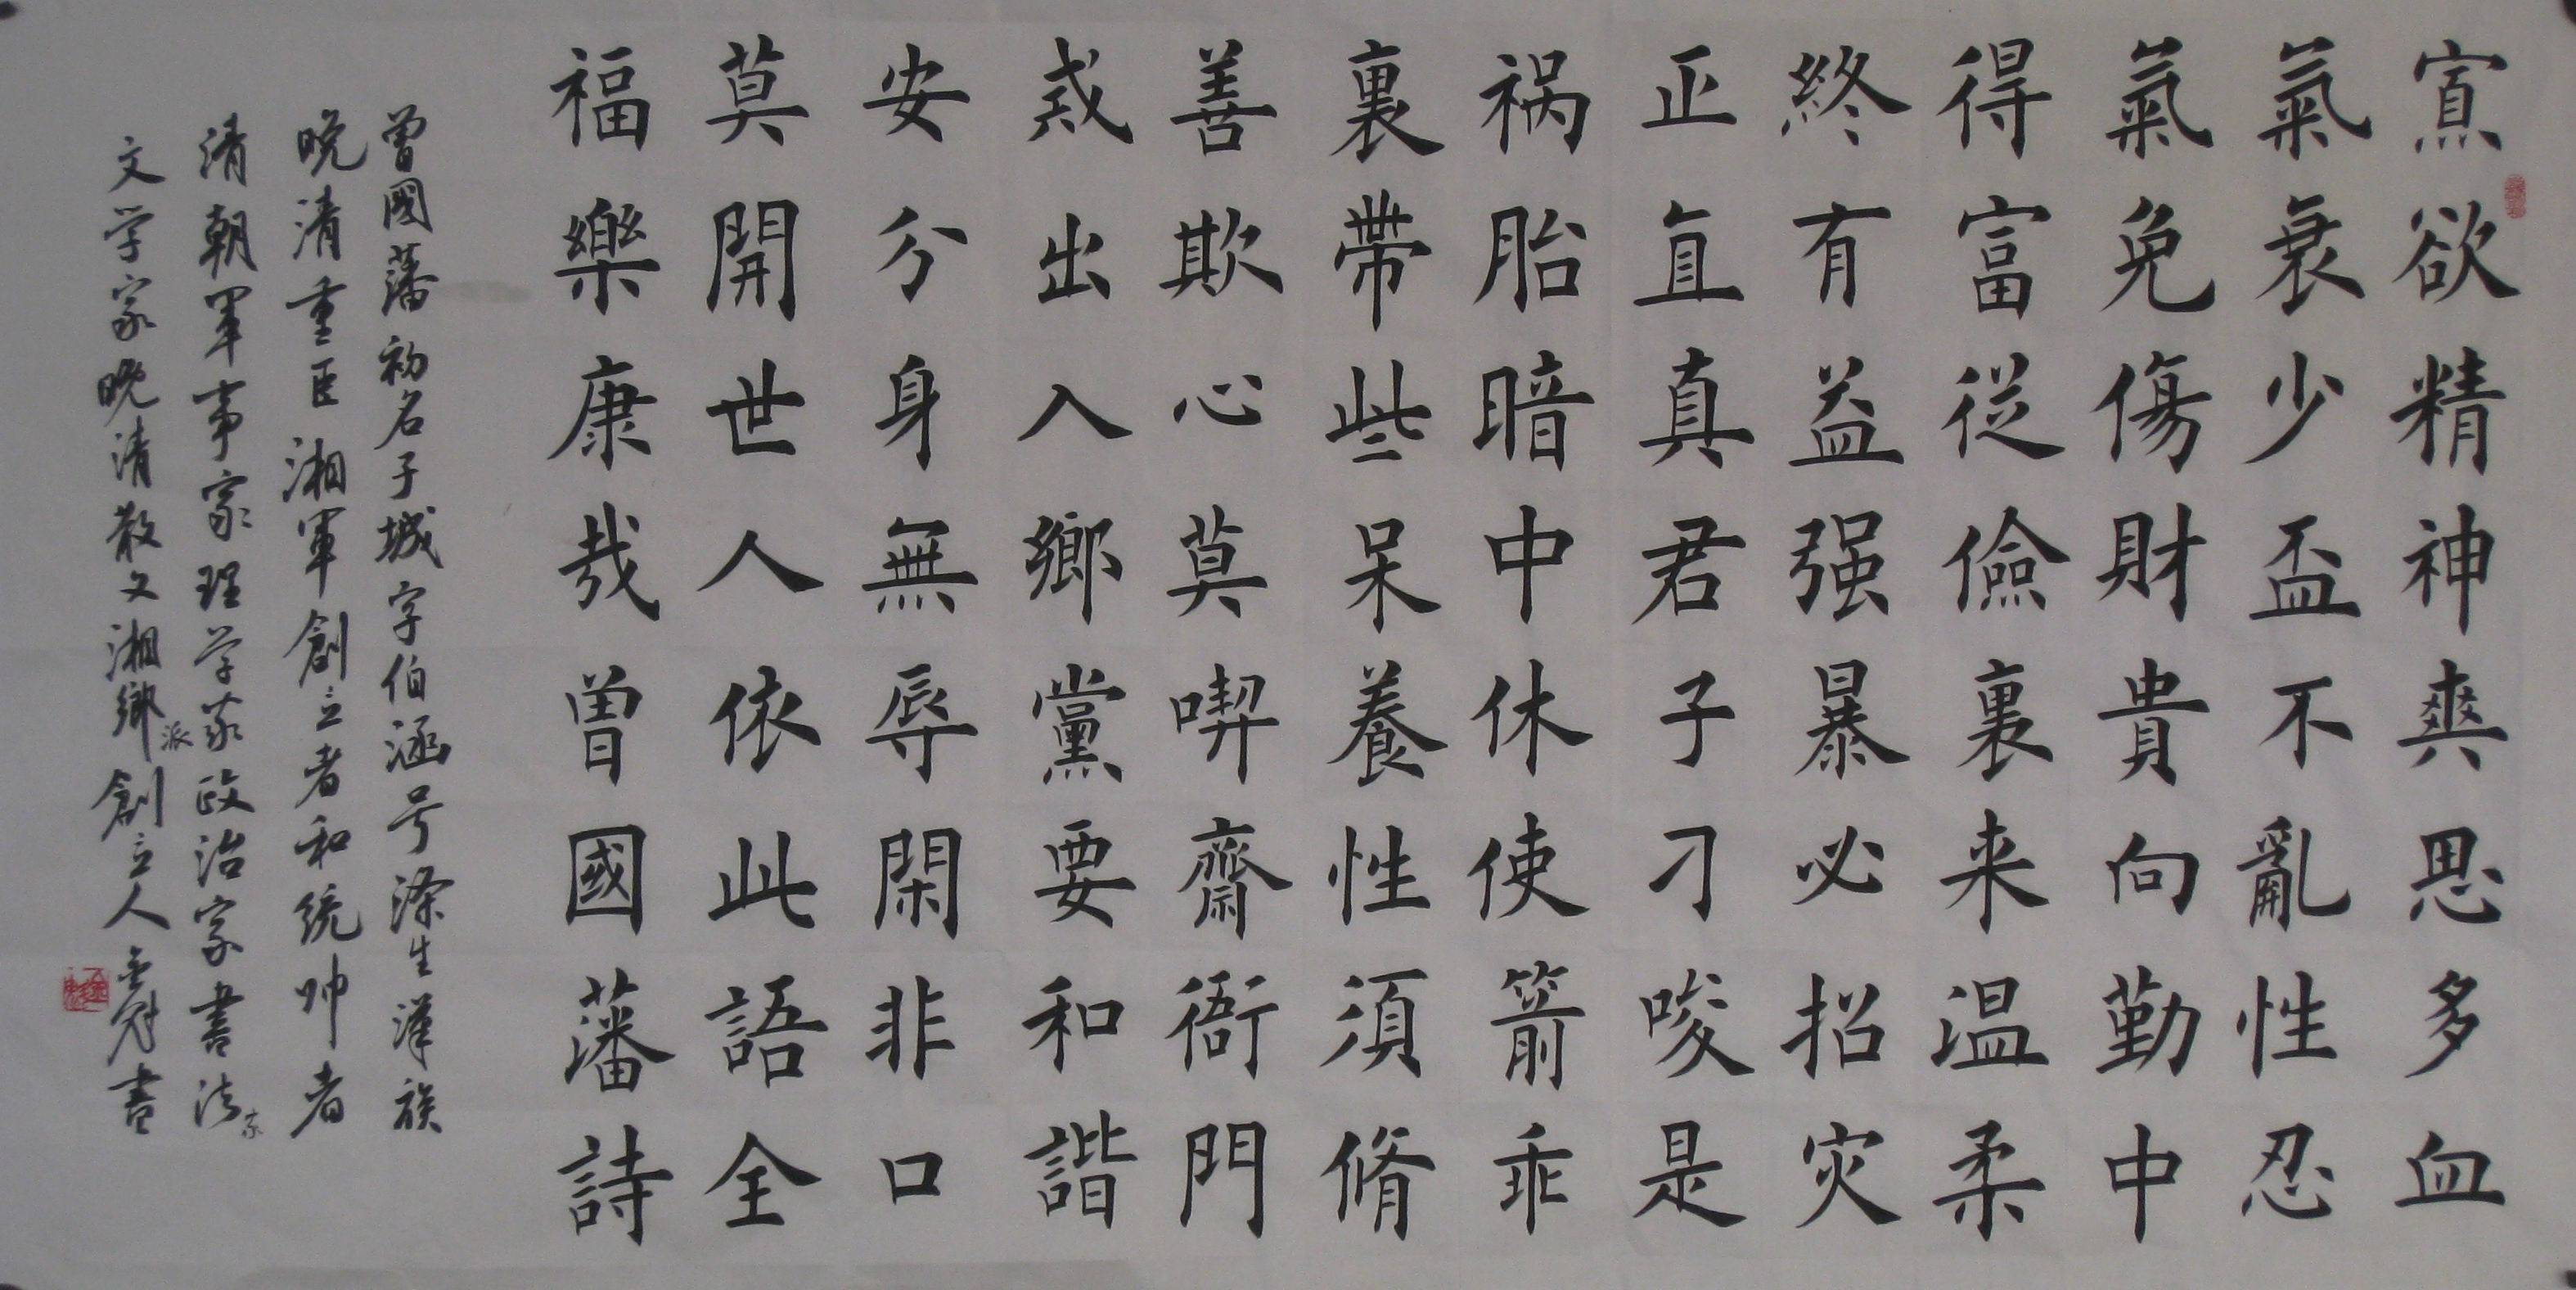 寡欲精神爽思多血
氣衰少盃不亂性忍
氣免傷財貴向勤中
得富從儉裏来温柔
終有益强暴必招灾
正直真君子刁唆是
祸胎暗中休使箭乖
裏帶些呆養性須脩
善欺心莫喫齋衙門
戒出入鄉黨要和諧
安分身無辱閑非口
莫開世人依此語全
福樂康哉曾國藩詩
曾國藩初名子城字伯涵号滌生漢族
晚清重臣湘軍創立者和统帅者
清朝軍事家理学家政治家書法家
文学家晚清散文湘鄉派創立人書